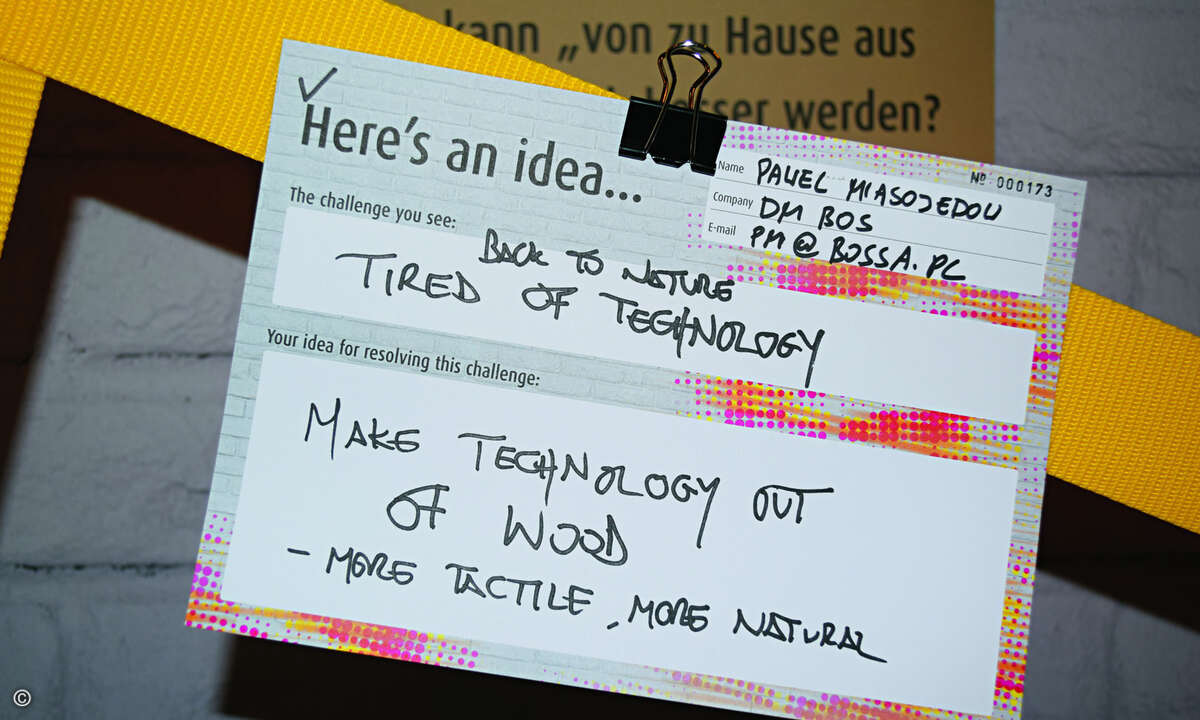 kann „von zu Hause aus
besser werden?
Here's an idea...
Nº 000173
Name PAWEL MIASOJEDOW
Company DM BOS
E-mail PM@BOSSA.PL
The challenge you see:
BACK TO NATURE
TIRED OF TECHNOLOGY
Your idea for resolving this challenge:
MAKE TECHNOLOGY OUT
OF WOOD
- MORE TACTILE, MORE NATURAL
©